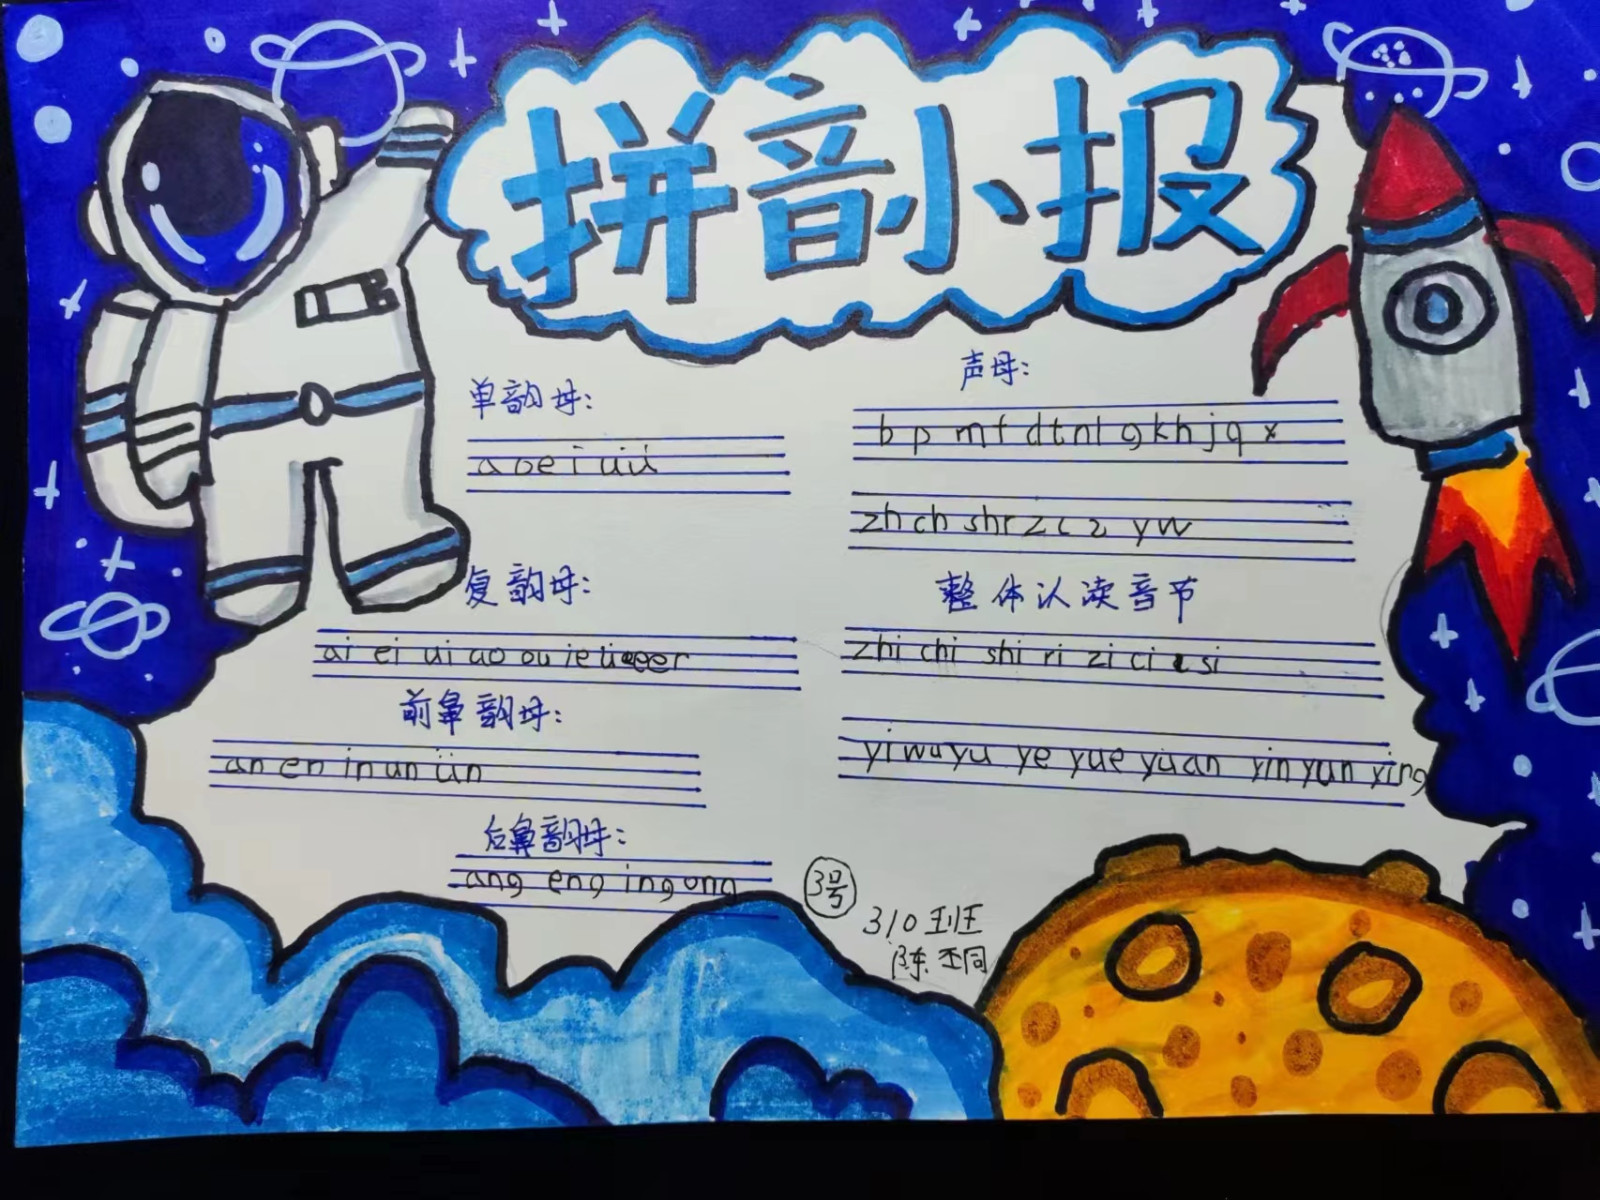 拼音小报
单韵母:
a o e i u ü
复韵母:
ai ei ui ao ou ie üe er
前鼻韵母:
an en in un ün
后鼻韵母:
ang eng ing ong
声母:
b p m f d t n l g k h j q x
zh ch sh r z c z y w
整体认读音节
zhi chi shi ri zi ci si
yi wu yu ye yue yuan yin yun ying
3号
310班
陈